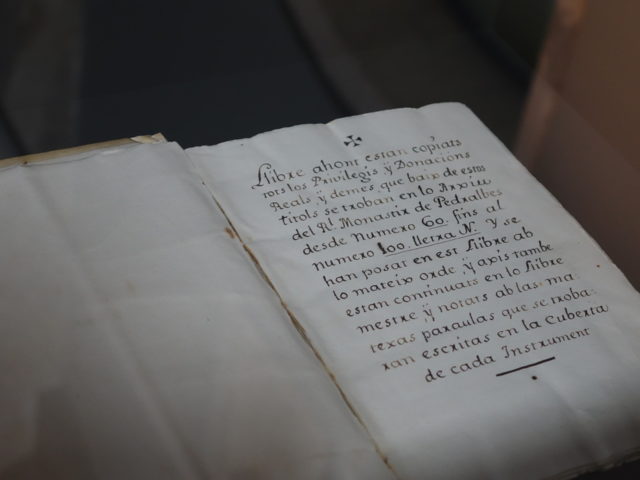 Llibre ahont estan copiats
tots los Privilegis ÿ Donacions
Reals, y demes, que baix de estos
titols se troban en lo Arxiu
del Rl. Monastir de Pedralbes
desde numero 60. fins al
numero 100. lletra N. y se
han posat en est Llibre ab
lo mateix orde, ÿ axis tambe
estan continuats en lo Llibre
mestre, ÿ notats ab las ma-
texas paraulas que se troba-
ran escritas en la Cuberta
de cada Instrument